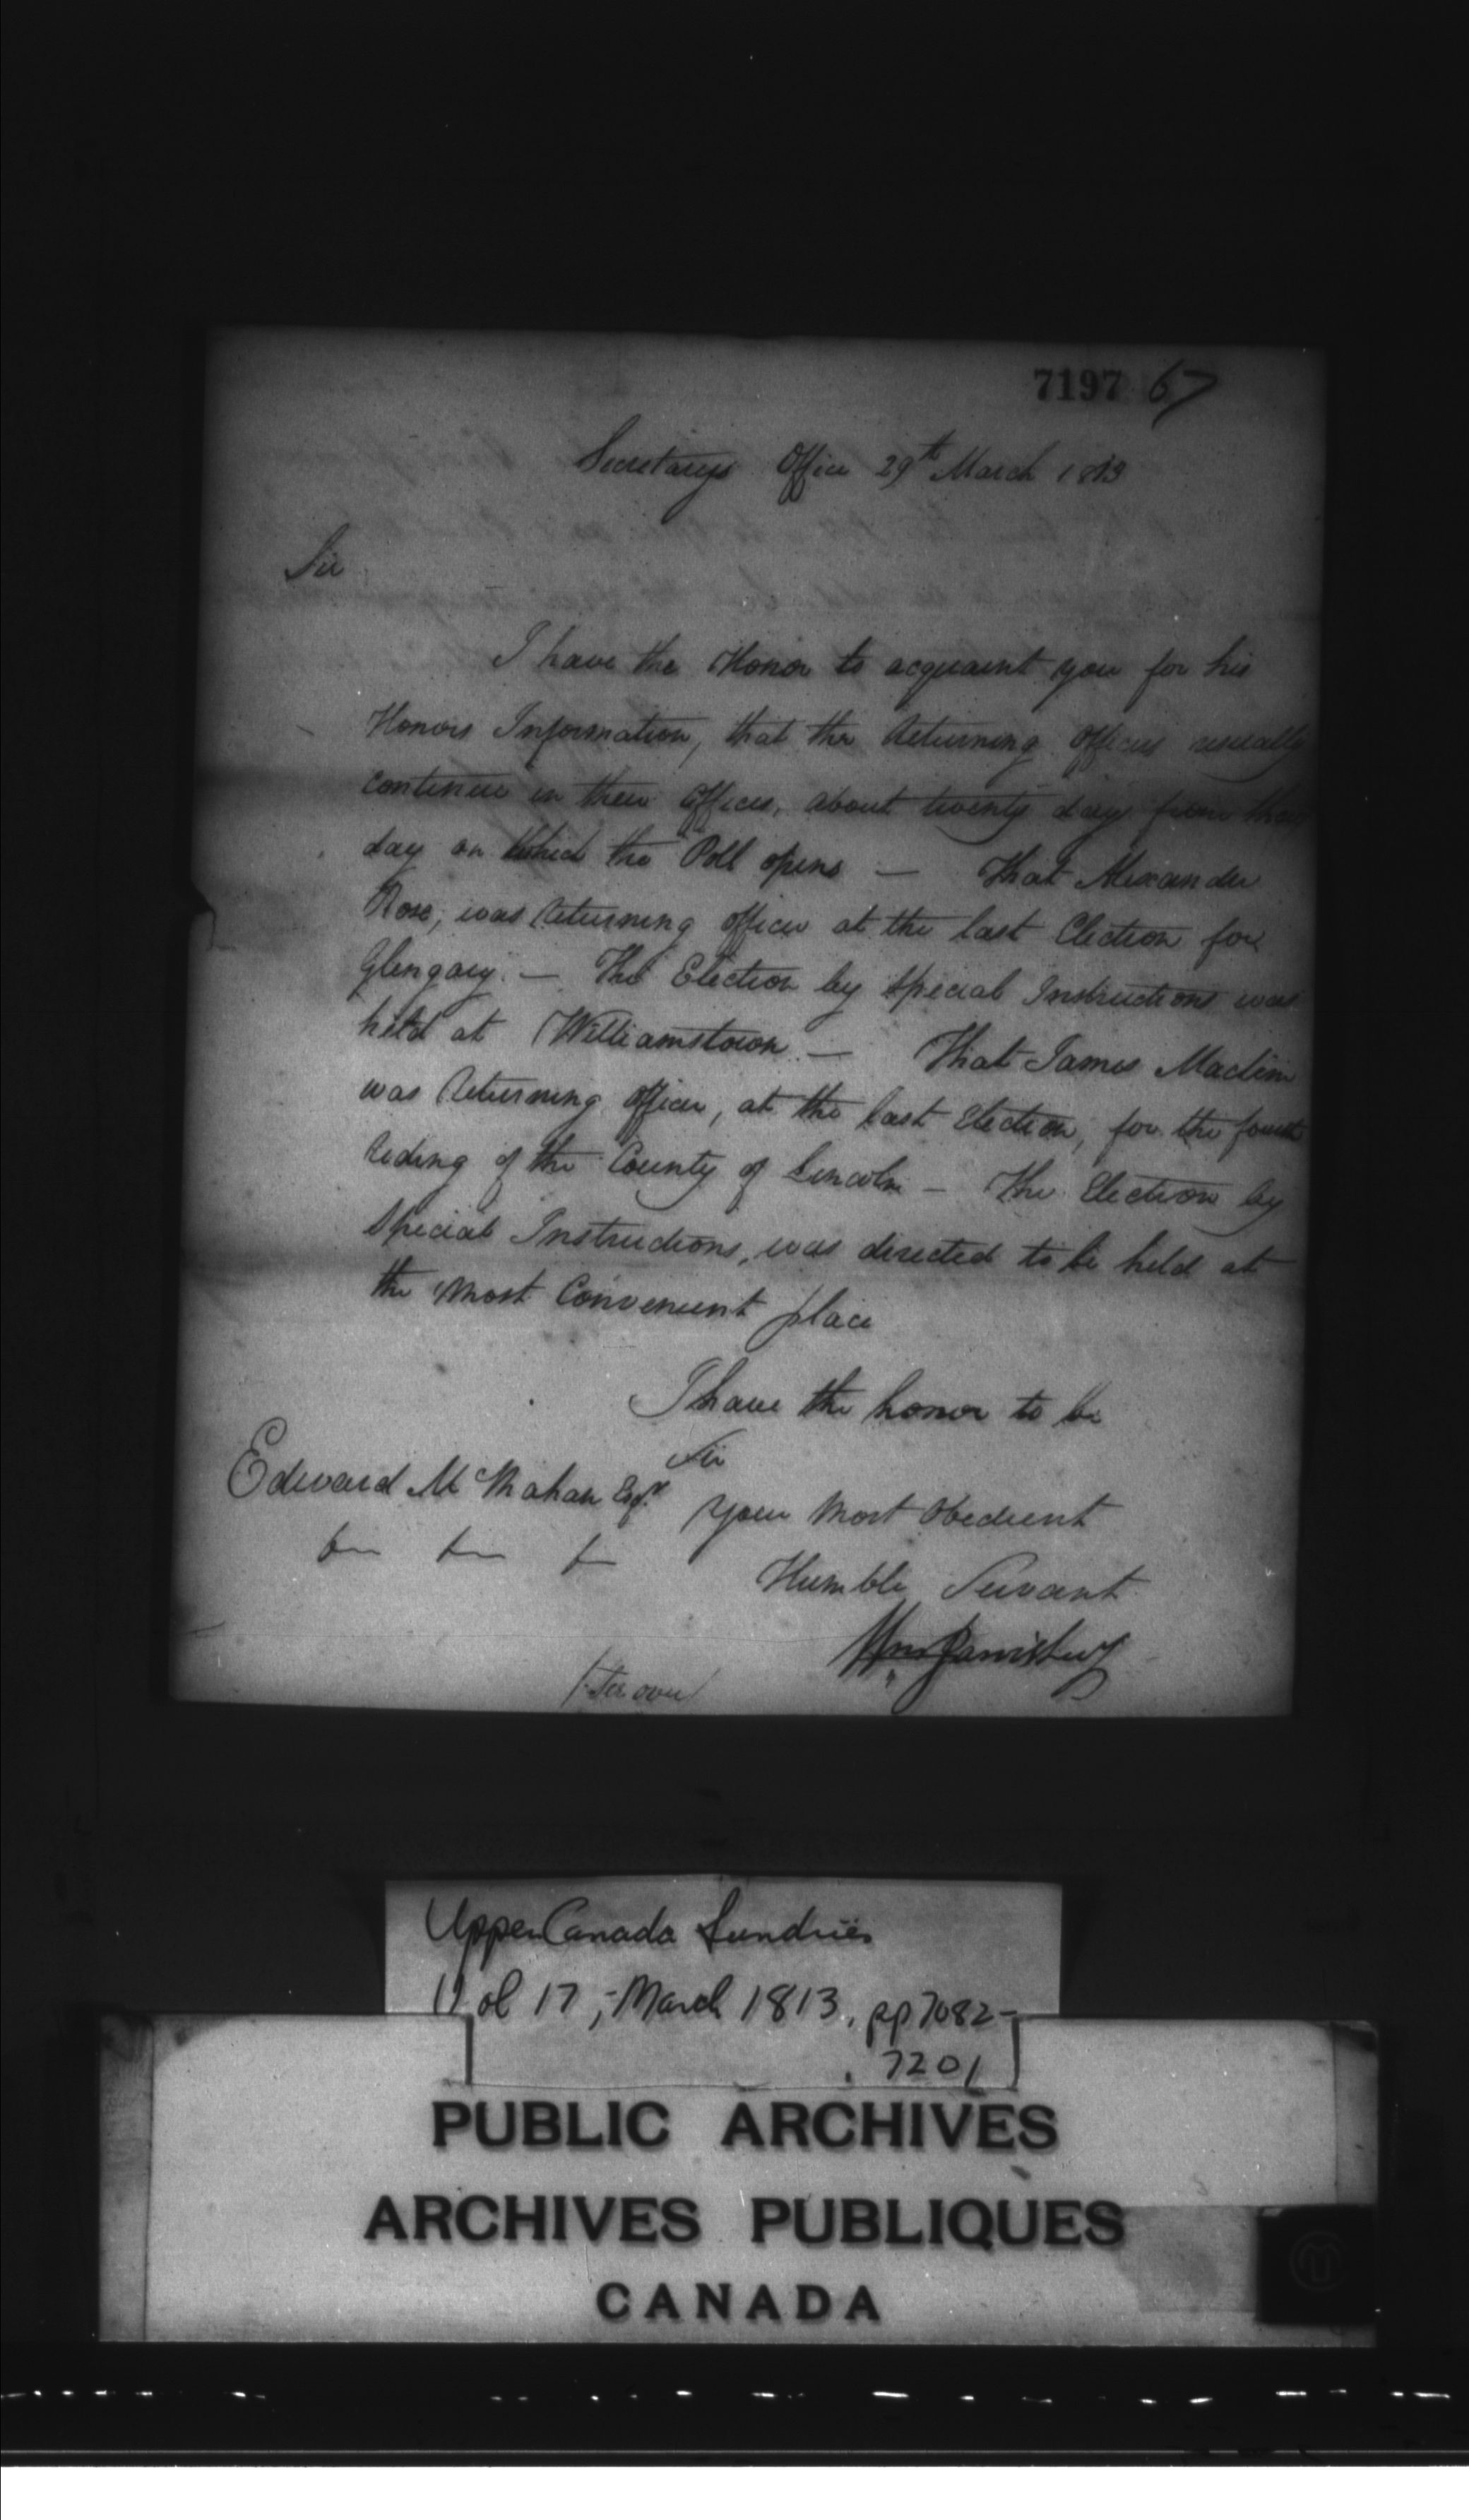 7197 67
Secretarys Office 29th March 1813
Sir
I have the Honor to acquaint you for his
Honors Information, that the Returning Officers usually
continue in their Offices, about twenty days from the
day on which the Poll opens — That Alexander
Rose, was Returning officer at the last Election for
Glengary. — The Election by Special Instructions was
held at Williamstown. — That James Maclem
was Returning officer, at the last Election, for the fourth
Riding of the County of Lincoln — The Election by
Special Instructions, was directed to be held at
the Most Convenient place
I have the honor to be
Sir
Edward McMahon Esqr
Your Most Obedient
Humble Servant
Wm Jarvis Secy
/ See over /
Upper Canada Sundries
Vol 17, - March 1813, pp 7082-
7201
PUBLIC ARCHIVES
ARCHIVES PUBLIQUES
CANADA